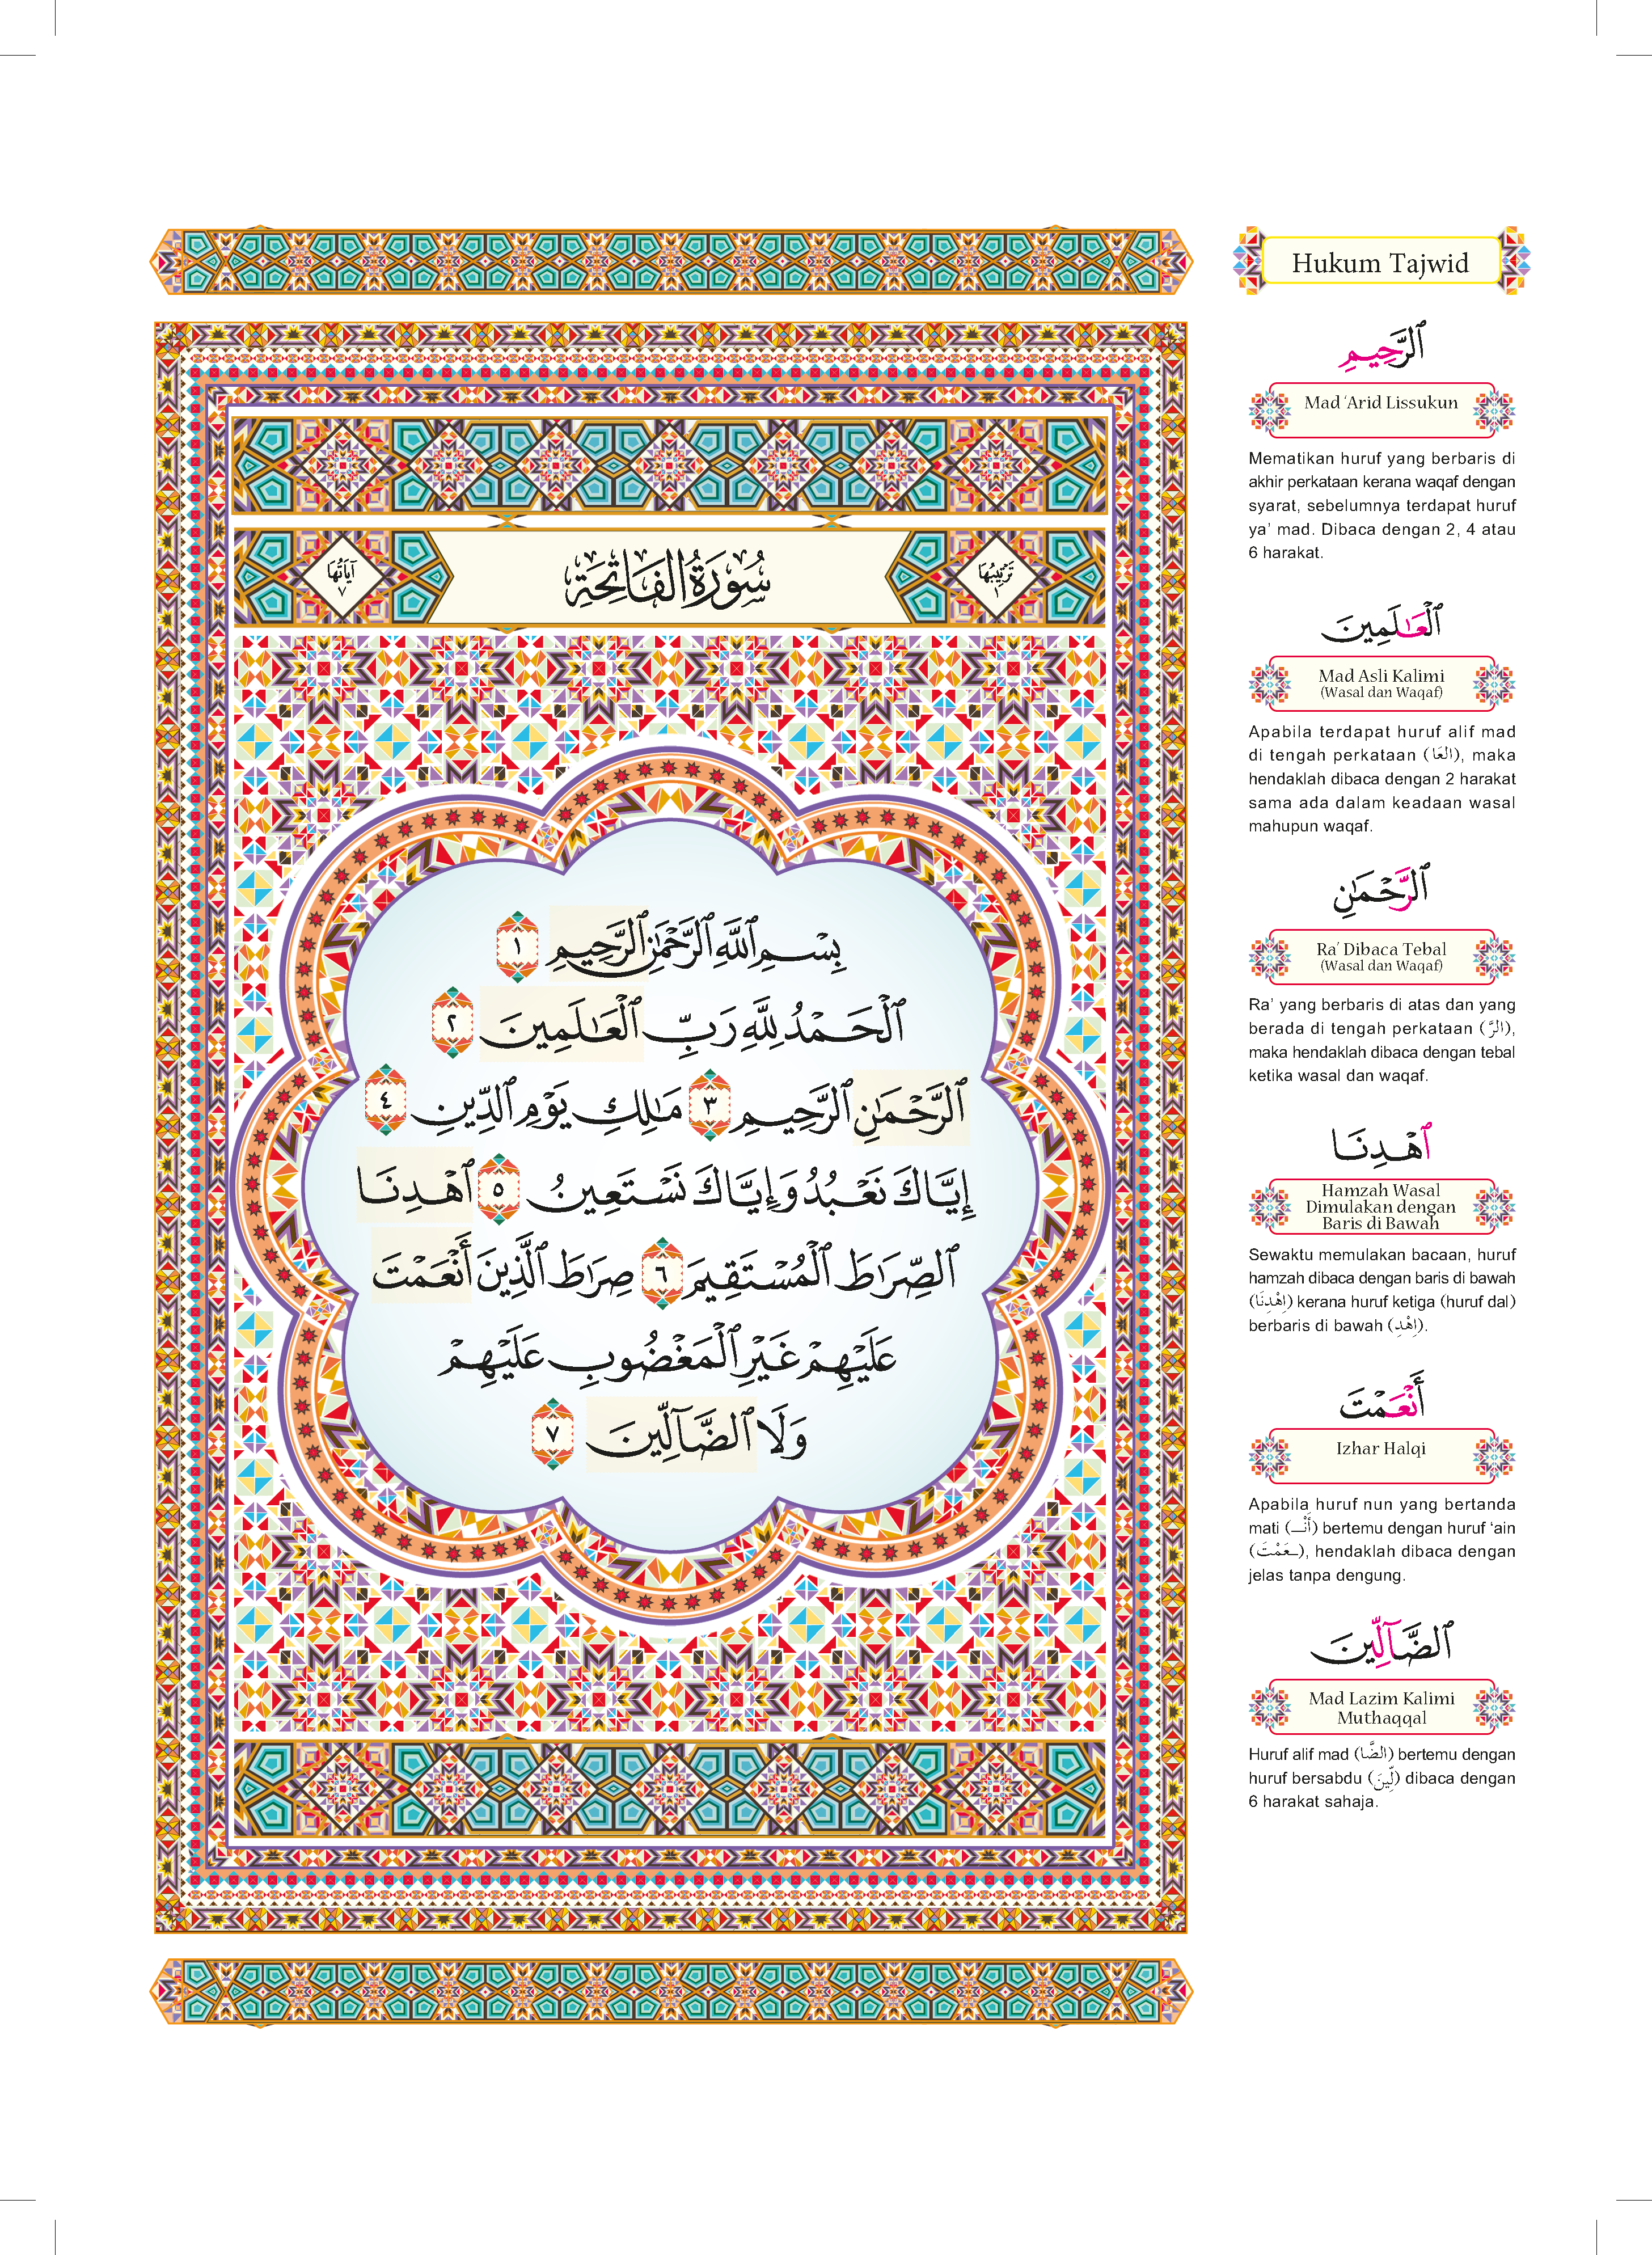 سُورَةُ الفَاتِحَةِ
تَرْتِيبُهَا
١
آيَاتُهَا
٧
بِسۡمِ ٱللَّهِ ٱلرَّحۡمَٰنِ ٱلرَّحِيمِ ١
ٱلۡحَمۡدُ لِلَّهِ رَبِّ ٱلۡعَٰلَمِينَ ٢
ٱلرَّحۡمَٰنِ ٱلرَّحِيمِ ٣ مَٰلِكِ يَوۡمِ ٱلدِّينِ ٤
إِيَّاكَ نَعۡبُدُ وَإِيَّاكَ نَسۡتَعِينُ ٥ ٱهۡدِنَا
ٱلصِّرَٰطَ ٱلۡمُسۡتَقِيمَ ٦ صِرَٰطَ ٱلَّذِينَ أَنۡعَمۡتَ
عَلَيۡهِمۡ غَيۡرِ ٱلۡمَغۡضُوبِ عَلَيۡهِمۡ
وَلَا ٱلضَّآلِّينَ ٧
Hukum Tajwid
ٱلرَّحِيمِ
Mad ‘Arid Lissukun
Mematikan huruf yang berbaris di
akhir perkataan kerana waqaf dengan
syarat, sebelumnya terdapat huruf
ya’ mad. Dibaca dengan 2, 4 atau
6 harakat.
ٱلۡعَٰلَمِينَ
Mad Asli Kalimi
(Wasal dan Waqaf)
Apabila terdapat huruf alif mad
di tengah perkataan (العَا), maka
hendaklah dibaca dengan 2 harakat
sama ada dalam keadaan wasal
mahupun waqaf.
ٱلرَّحۡمَٰنِ
Ra’ Dibaca Tebal
(Wasal dan Waqaf)
Ra’ yang berbaris di atas dan yang
berada di tengah perkataan (الرَّ),
maka hendaklah dibaca dengan tebal
ketika wasal dan waqaf.
ٱهۡدِنَا
Hamzah Wasal
Dimulakan dengan
Baris di Bawah
Sewaktu memulakan bacaan, huruf
hamzah dibaca dengan baris di bawah
(اِهْدِنَا) kerana huruf ketiga (huruf dal)
berbaris di bawah (اِهْدِ).
أَنۡعَمۡتَ
Izhar Halqi
Apabila huruf nun yang bertanda
mati (أَنْـ) bertemu dengan huruf ‘ain
(ـعَمْتَ), hendaklah dibaca dengan
jelas tanpa dengung.
ٱلضَّآلِّينَ
Mad Lazim Kalimi
Muthaqqal
Huruf alif mad (الضَّا) bertemu dengan
huruf bersabdu (لِّينَ) dibaca dengan
6 harakat sahaja.